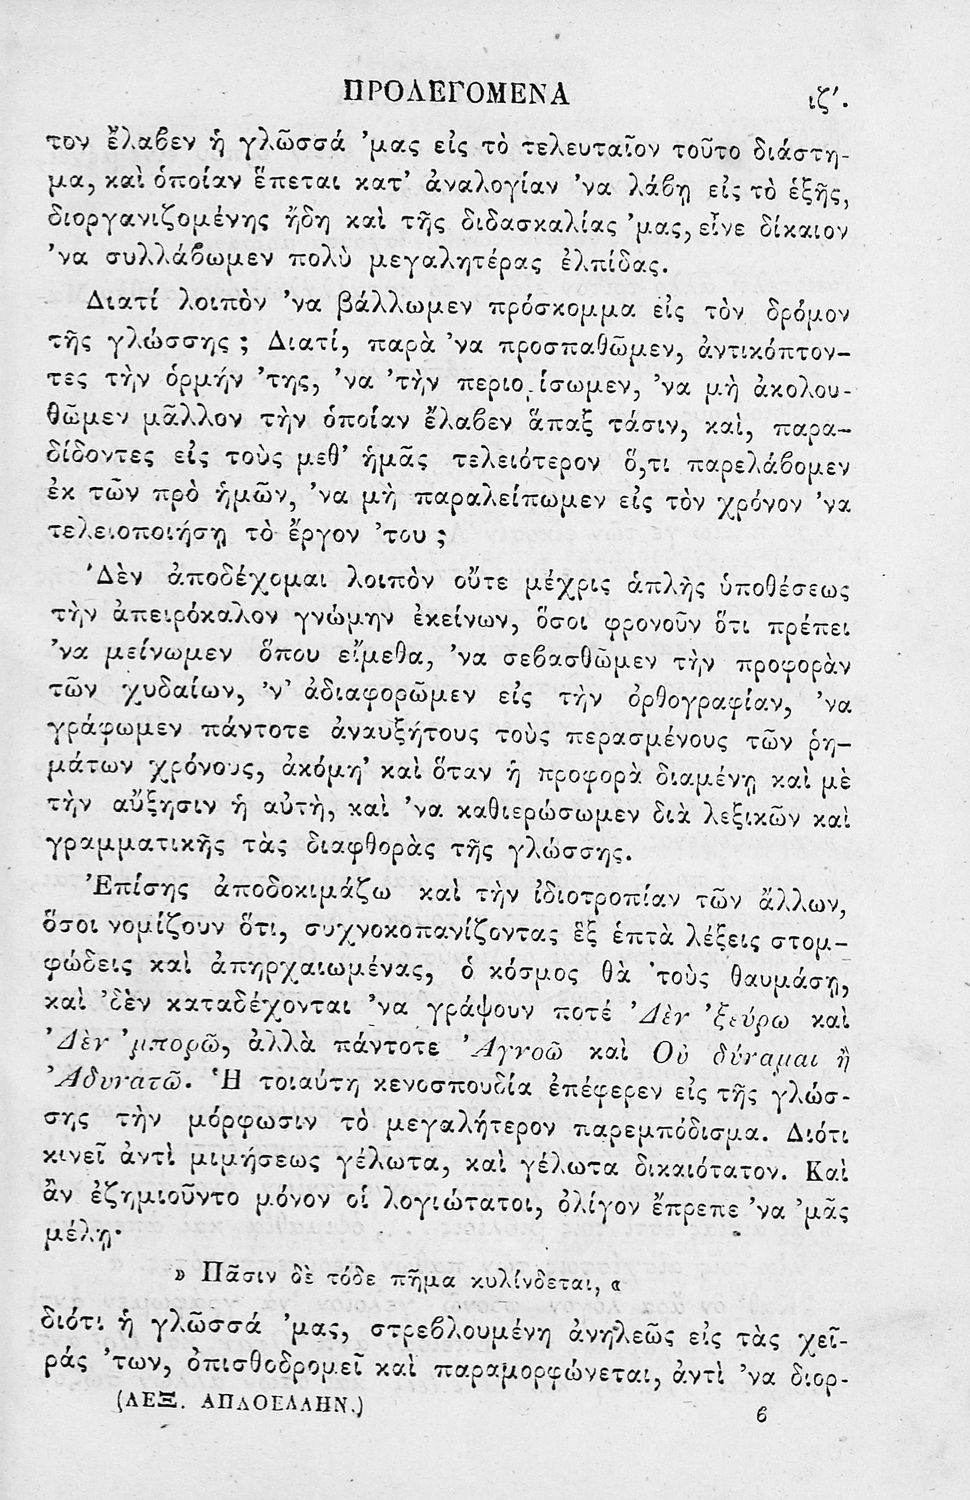 ΠΡΟΛΕΓΟΜΕΝΑ ιζ΄.
τον ἔλαβεν ἡ γλῶσσά ’μας εἰς τὸ τελευταῖον τοῦτο διάστη-
μα, καὶ ὁποίαν ἕπεται κατ’ ἀναλογίαν ’να λάβῃ εἰς τὸ ἑξῆς,
διοργανιζομένης ἤδη καὶ τῆς διδασκαλίας ’μας, εἶνε δίκαιον
’να συλλάβωμεν πολὺ μεγαλητέρας ἐλπίδας.
Διατί λοιπὸν ’να βάλλωμεν πρόσκομμα εἰς τὸν δρόμον
τῆς γλώσσης ; Διατί, παρὰ ’να προσπαθῶμεν, ἀντικόπτον-
τες τὴν ὁρμήν ’της, ’να ’τὴν περιορίσωμεν, ’να μὴ ἀκολου-
θῶμεν μᾶλλον τὴν ὁποίαν ἔλαβεν ἅπαξ τάσιν, καὶ, παρα-
δίδοντες εἰς τοὺς μεθ’ ἡμᾶς τελειότερον ὅ,τι παρελάβομεν
ἐκ τῶν πρὸ ἡμῶν, ’να μὴ παραλείπωμεν εἰς τὸν χρόνον ’να
τελειοποιήσῃ τὸ ἔργον ’του ;
’Δὲν ἀποδέχομαι λοιπὸν οὔτε μέχρις ἁπλῆς ὑποθέσεως
τὴν ἀπειρόκαλον γνώμην ἐκείνων, ὅσοι φρονοῦν ὅτι πρέπει
’να μείνωμεν ὅπου εἴμεθα, ’να σεβασθῶμεν τὴν προφορὰν
τῶν χυδαίων, ’ν’ ἀδιαφορῶμεν εἰς τὴν ὀρθογραφίαν, ’να
γράφωμεν πάντοτε ἀναυξήτους τοὺς περασμένους τῶν ῥη-
μάτων χρόνους, ἀκόμη’ καὶ ὅταν ἡ προφορὰ διαμένῃ καὶ μὲ
τὴν αὔξησιν ἡ αὐτὴ, καὶ ’να καθιερώσωμεν διὰ λεξικῶν καὶ
γραμματικῆς τὰς διαφθορὰς τῆς γλώσσης.
’Επίσης ἀποδοκιμάζω καὶ τὴν ἰδιοτροπίαν τῶν ἄλλων,
ὅσοι νομίζουν ὅτι, συχνοκοπανίζοντας ἓξ ἑπτὰ λέξεις στομ-
φώδεις καὶ ἀπηρχαιωμένας, ὁ κόσμος θὰ ’τοὺς θαυμάσῃ,
καὶ ’δὲν καταδέχονται ’να γράψουν ποτέ ’Δὲν ’ξεύρω καὶ
’Δὲν ’μπορῶ, ἀλλὰ πάντοτε ’Αγνοῶ καὶ Οὐ δύναμαι ἢ
’Αδυνατῶ. Ἡ τοιαύτη κενοσπουδία ἐπέφερεν εἰς τῆς γλώσ-
σης τὴν μόρφωσιν τὸ μεγαλήτερον παρεμπόδισμα. Διότι
κινεῖ ἀντὶ μιμήσεως γέλωτα, καὶ γέλωτα δικαιότατον. Καὶ
ἂν ἐζημιοῦντο μόνον οἱ λογιώτατοι, ὀλίγον ἔπρεπε ’να ’μᾶς
μέλῃ·
» Πᾶσιν δὲ τόδε πῆμα κυλίνδεται, «
διότι ἡ γλῶσσά ’μας, στρεβλουμένη ἀνηλεῶς εἰς τὰς χεῖ-
ράς ’των, ὀπισθοδρομεῖ καὶ παραμορφώνεται, ἀντὶ ’να διορ-
(ΛΕΞ. ΑΠΛΟΕΛΛΗΝ.) ϐ